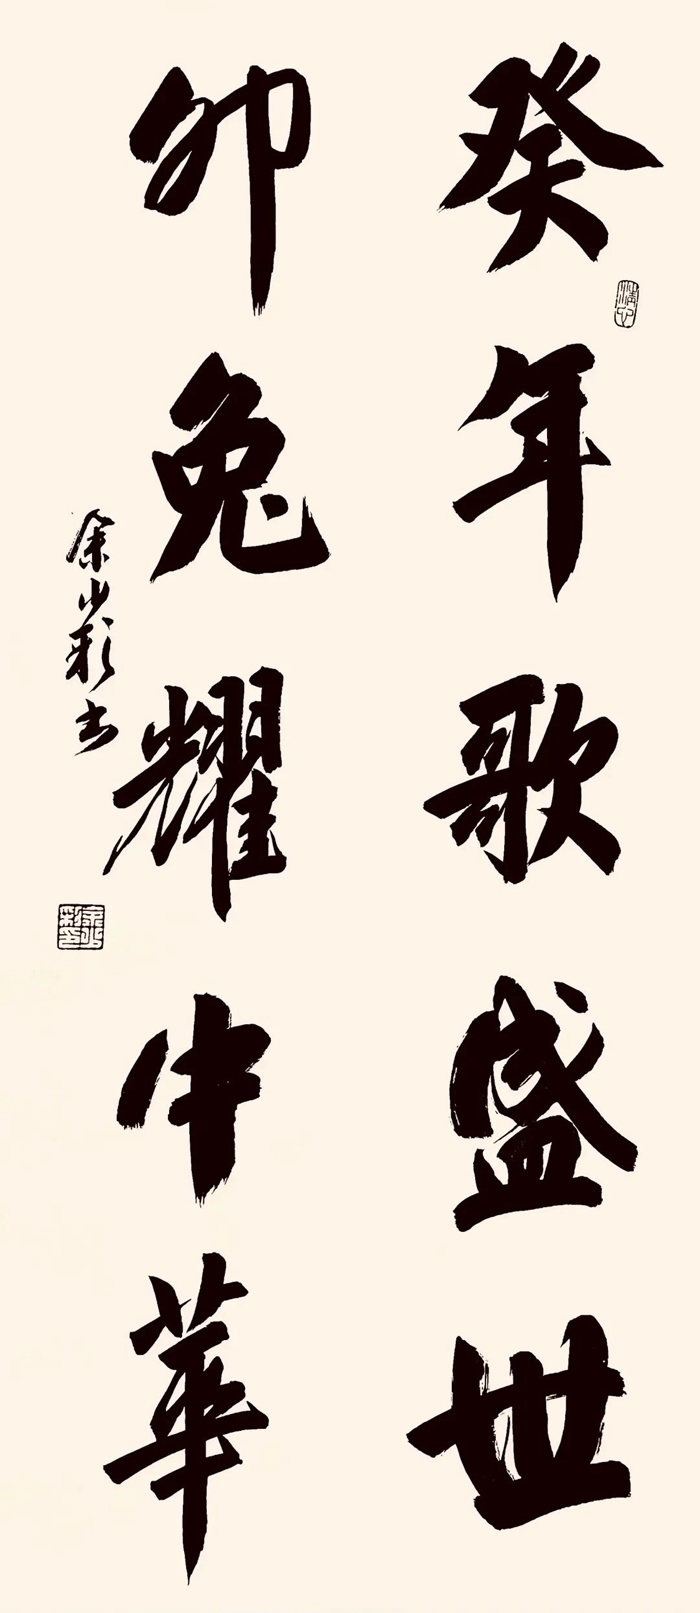 癸年歌盛世
卯兔耀中華
余少彩书
清心